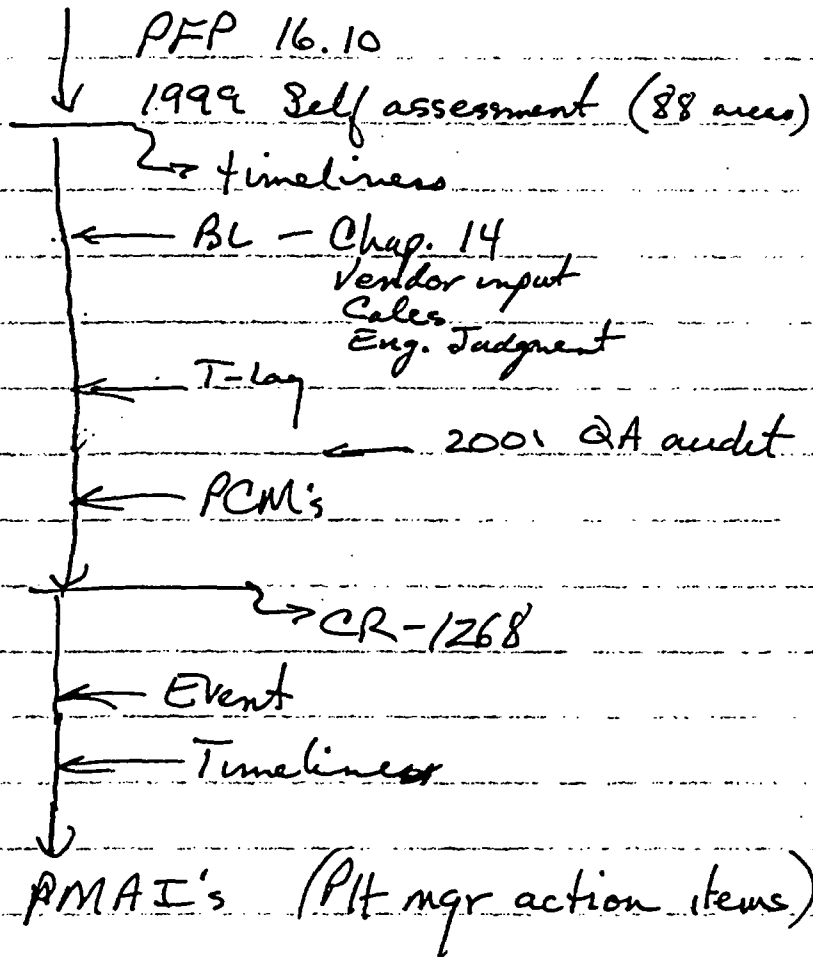 PFP 16.10
1999 Self assessment (88 areas)
timeliness
BL - Chap. 14
Vendor input
Calcs
Eng. Judgment
T-Lag
2001 QA audit
PCM's
CR-1268
Event
Timeliness
PMAI's (Plt mgr action items)